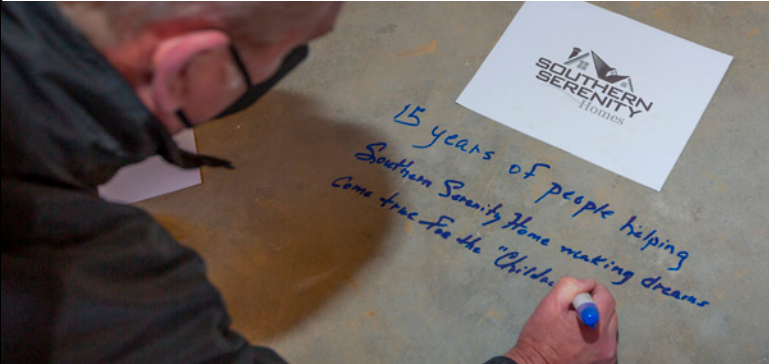 SOUTHERN
SERENITY
Homes
15 years of people helping
Southern Serenity Home making dreams
come true For the "Childre